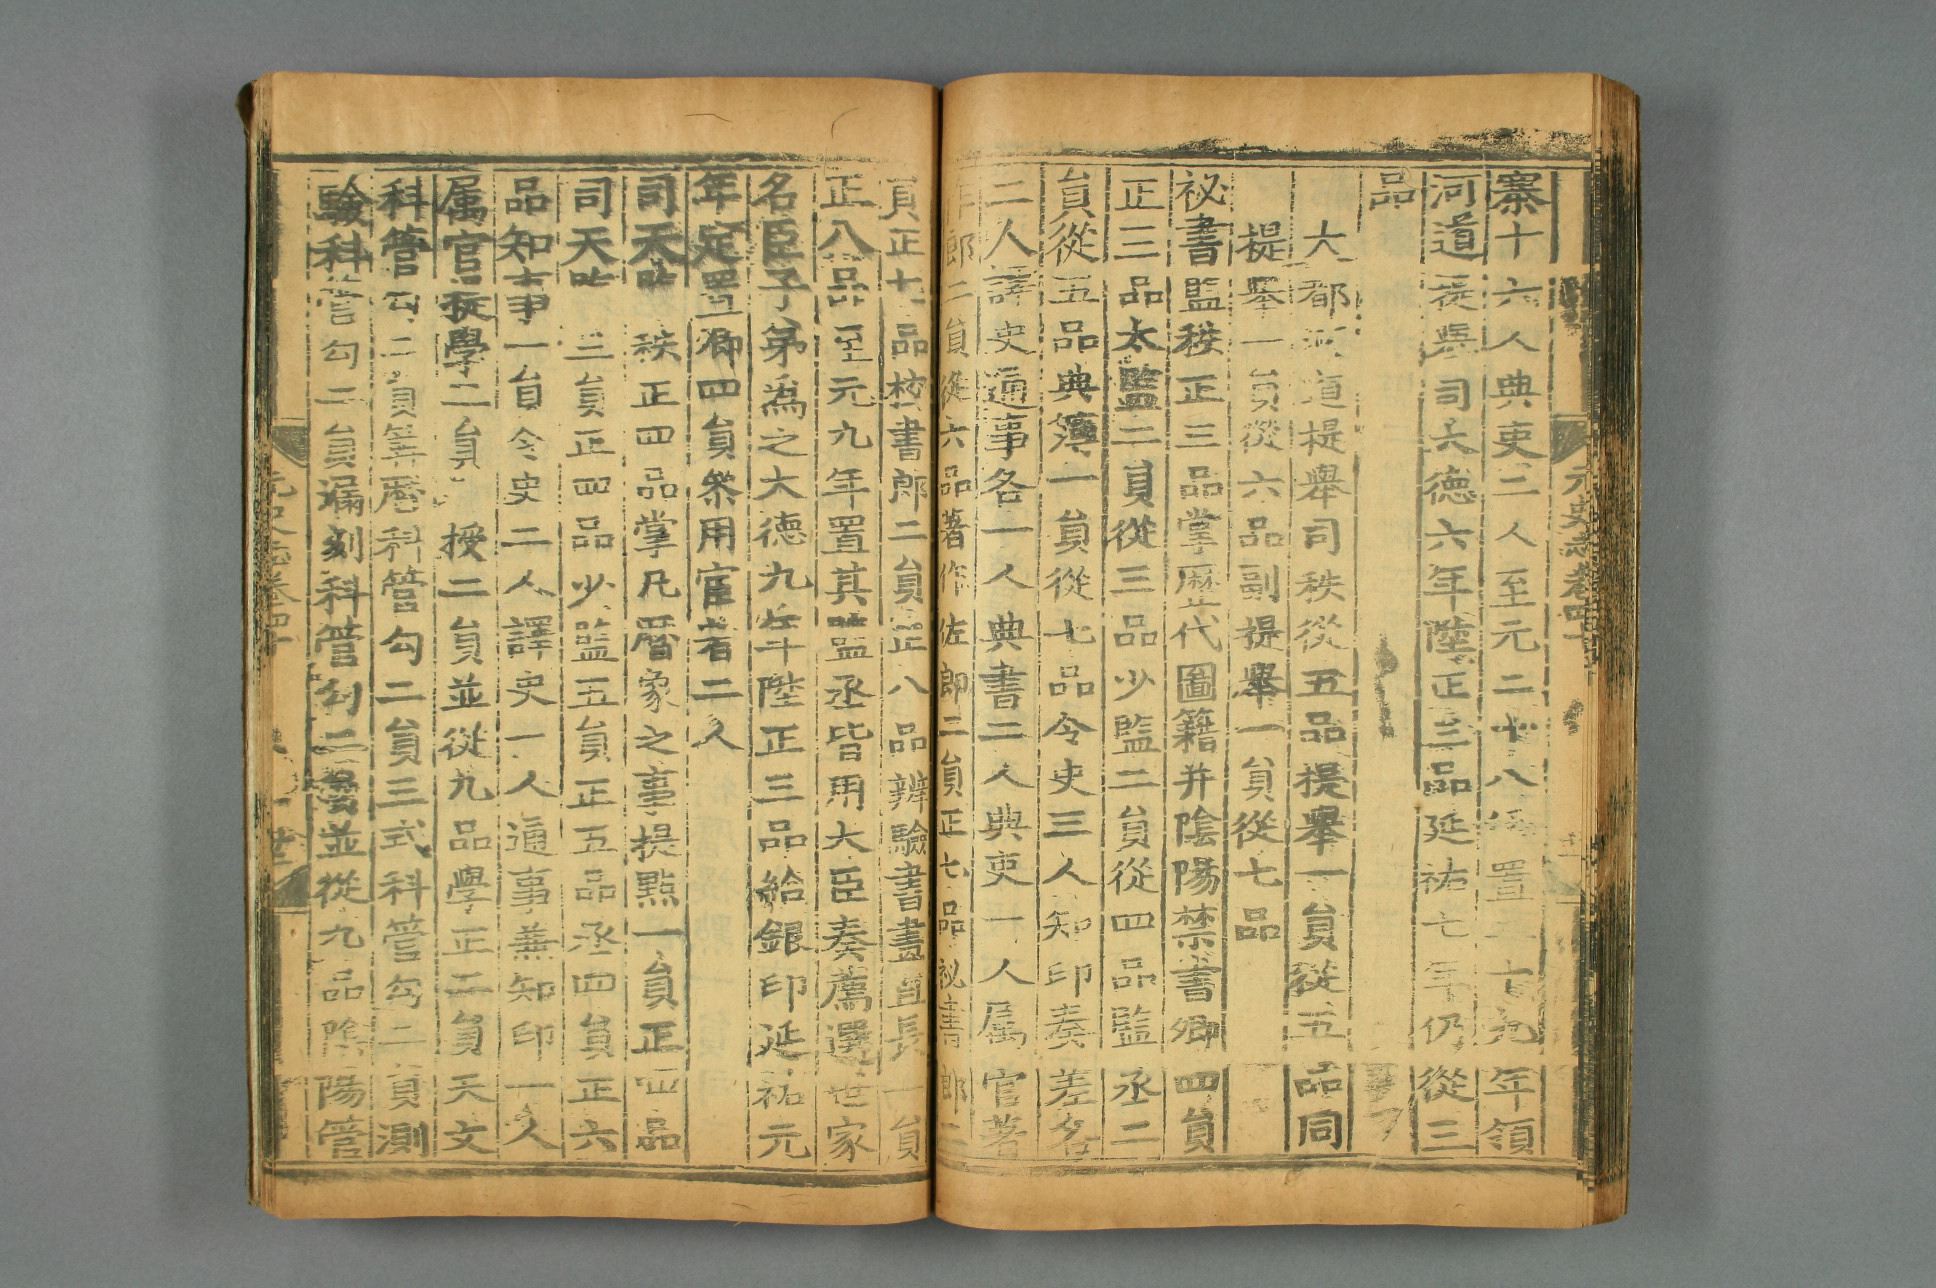 元史志卷四十
寨十六人典吏二人至元二十八年置二十九年領
河道提舉司大德六年陞正三品延祐七年仍從三
品
大都河道提舉司秩從五品提舉一員從五品同
提舉一員從六品副提舉一員從七品
祕書監秩正三品掌歷代圖籍并陰陽禁書卿四員
正三品太監二員從三品少監二員從四品監丞二
員從五品典簿一員從七品令史三人知印奏差各
二人譯史通事各一人典書二人典吏一人属官著
作郎二員從六品著作佐郎二員正七品祕書郎二
員正七品校書郎二員正八品辨驗書畫直長一員
正八品至元九年置其監丞皆用大臣奏薦選世家
名臣子弟爲之大德九年陞正三品給銀印延祐元
年定置卿四員叅用宦者二人
司天監秩正四品掌凡曆象之事提點一員正四品
司天監三員正四品少監五員正五品丞四員正六
品知事一員令史二人譯史一人通事兼知印一人
属官提學二員教授二員並從九品學正二員天文
科管勾二員筭曆科管勾二員三式科管勾二員測
驗科管勾二員漏刻科管勾二員並從九品陰陽管
元史志卷四十